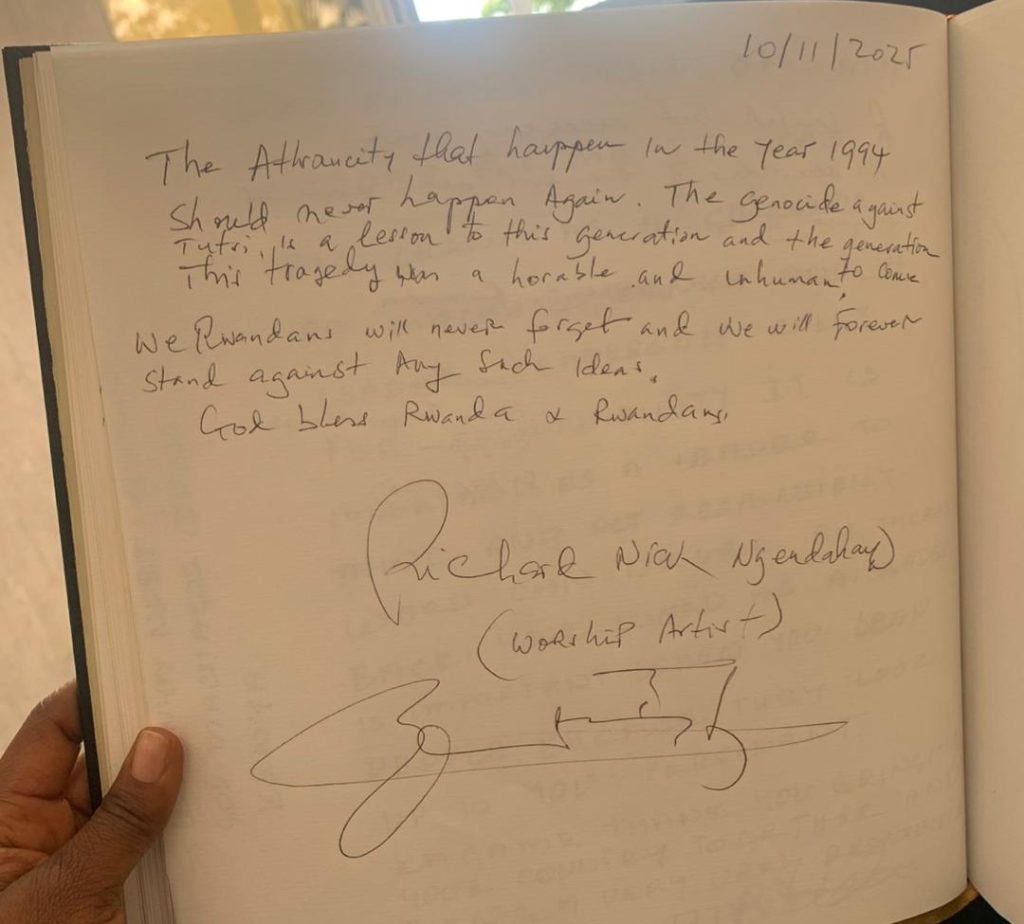 10/11/2025
The Athraucity that happen in the year 1994
Should never happen Again. The genocide against
Tutsi, is a lesson to this generation and the generation
This tragedy was a horable and inhuman, to come
We Rwandans will never forget and we will forever
stand against Any Such Ideas.
God bless Rwanda & Rwandans.
Richard Nick Ngendahayo
(Worship Artist)